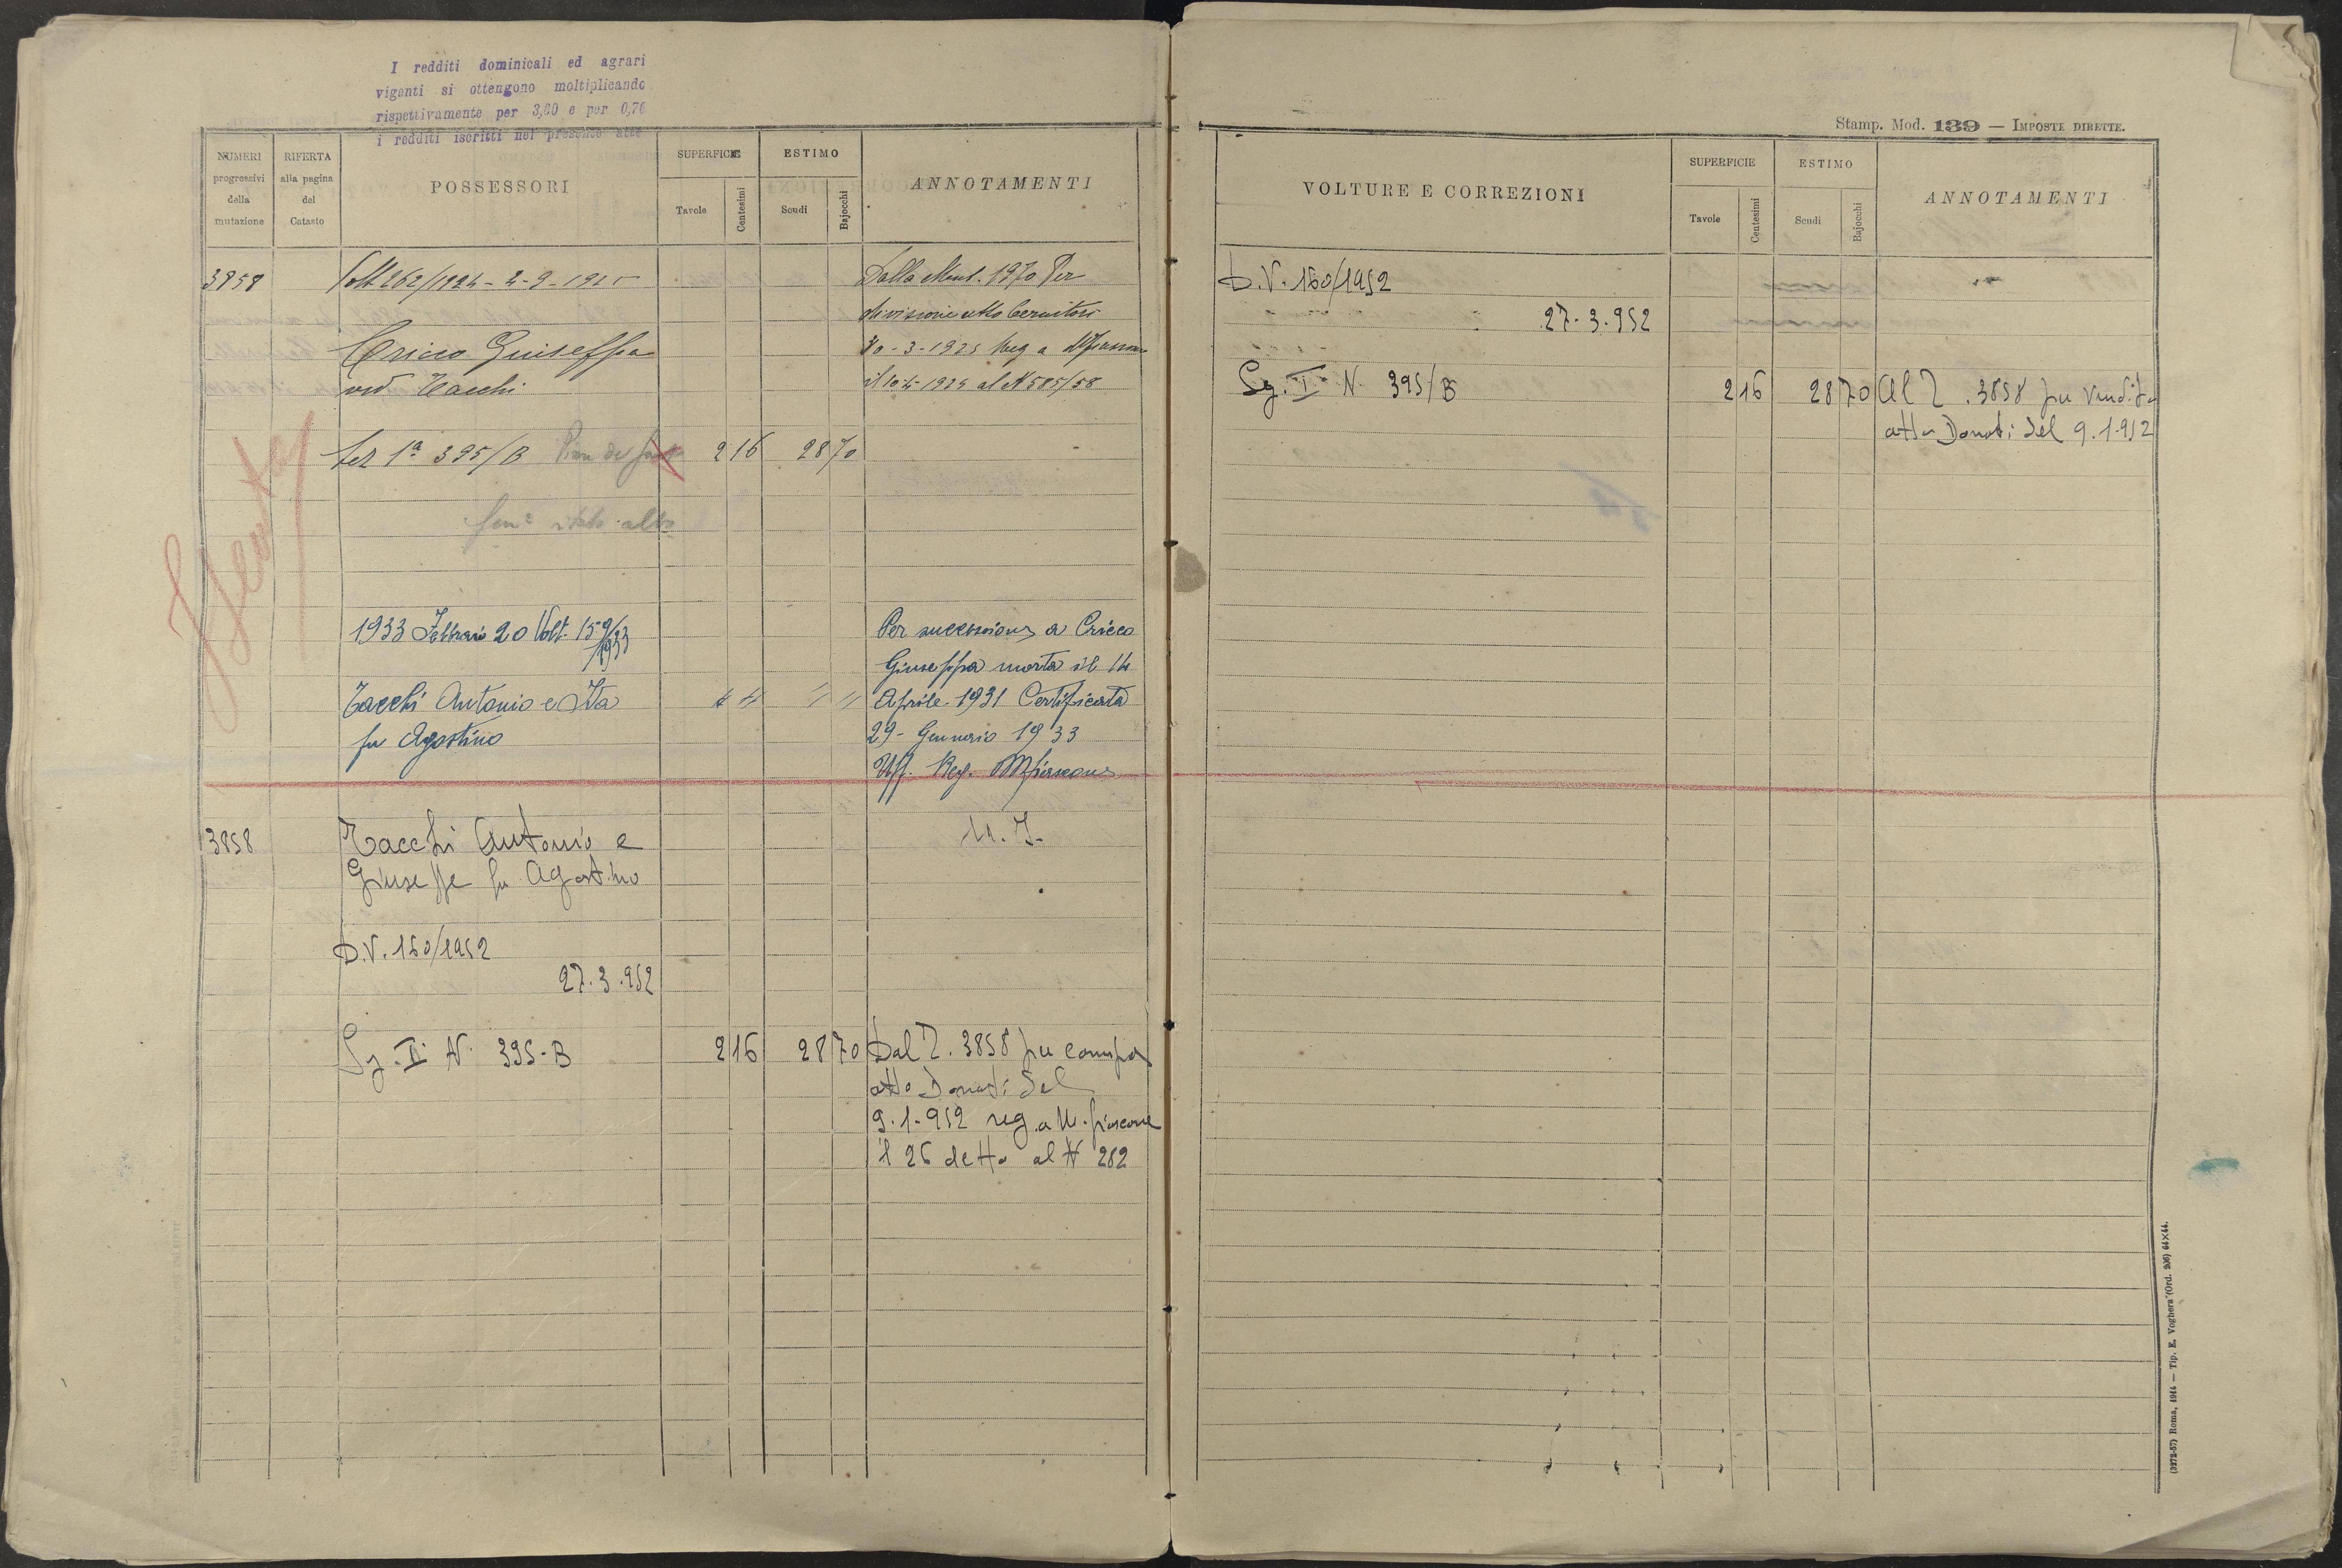 I redditi dominicali ed agrari
viganti si ottengono moltiplicando
rispettivamente per 3,60 e per 0,70
i redditi iscritti nel presente atto
NUMERI progressivi della mutazione
RIFERTA alla pagina del Catasto
POSSESSORI
SUPERFICIE
Tavole Centesimi
ESTIMO
Scudi Bajocchi
ANNOTAMENTI
3858 Volt 262/1924 - 2-9-1925 Dalla Mut. 1970 Per
divisione atto Cernitori
Cricco Guiseffa 30-3-1925 Reg a
ved Tacchi il 10-4-1925 al N 585/58
Sez 1ª 395/B 2 16 28 70
stato alto
1933 Febbraio 20 Volt. 159/1933 Per successione a Cricco
Giuseppa morta il 14
Tacchi Antonio e Ita " " " " Aprile 1931 Certificato
fu Agostino 29 - Gennaio 1933
Uff. Reg. Mfiascone
3858 Tacchi Antonio e
Giuseppe fu Agostino
D.V. 150/1952
27.3.952
Sz. I N 395-B 2 16 28 70 Dal . 3858 per compra
atto Donati del
9.1.952 reg. a M.fiascone
il 26 detto al N 262
Stamp. Mod. 139 — IMPOSTE DIRETTE.
VOLTURE E CORREZIONI
SUPERFICIE
Tavole Centesimi
ESTIMO
Scudi Bajocchi
ANNOTAMENTI
D.V. 150/1952
27.3.952
Sz. I N 395/B 2 16 28 70 Al . 3858 per vendita
atto Donati del 9.1.952
(3272-57) Roma, 1914 — Tip. E. Voghera (Ord. 206) 64×44.